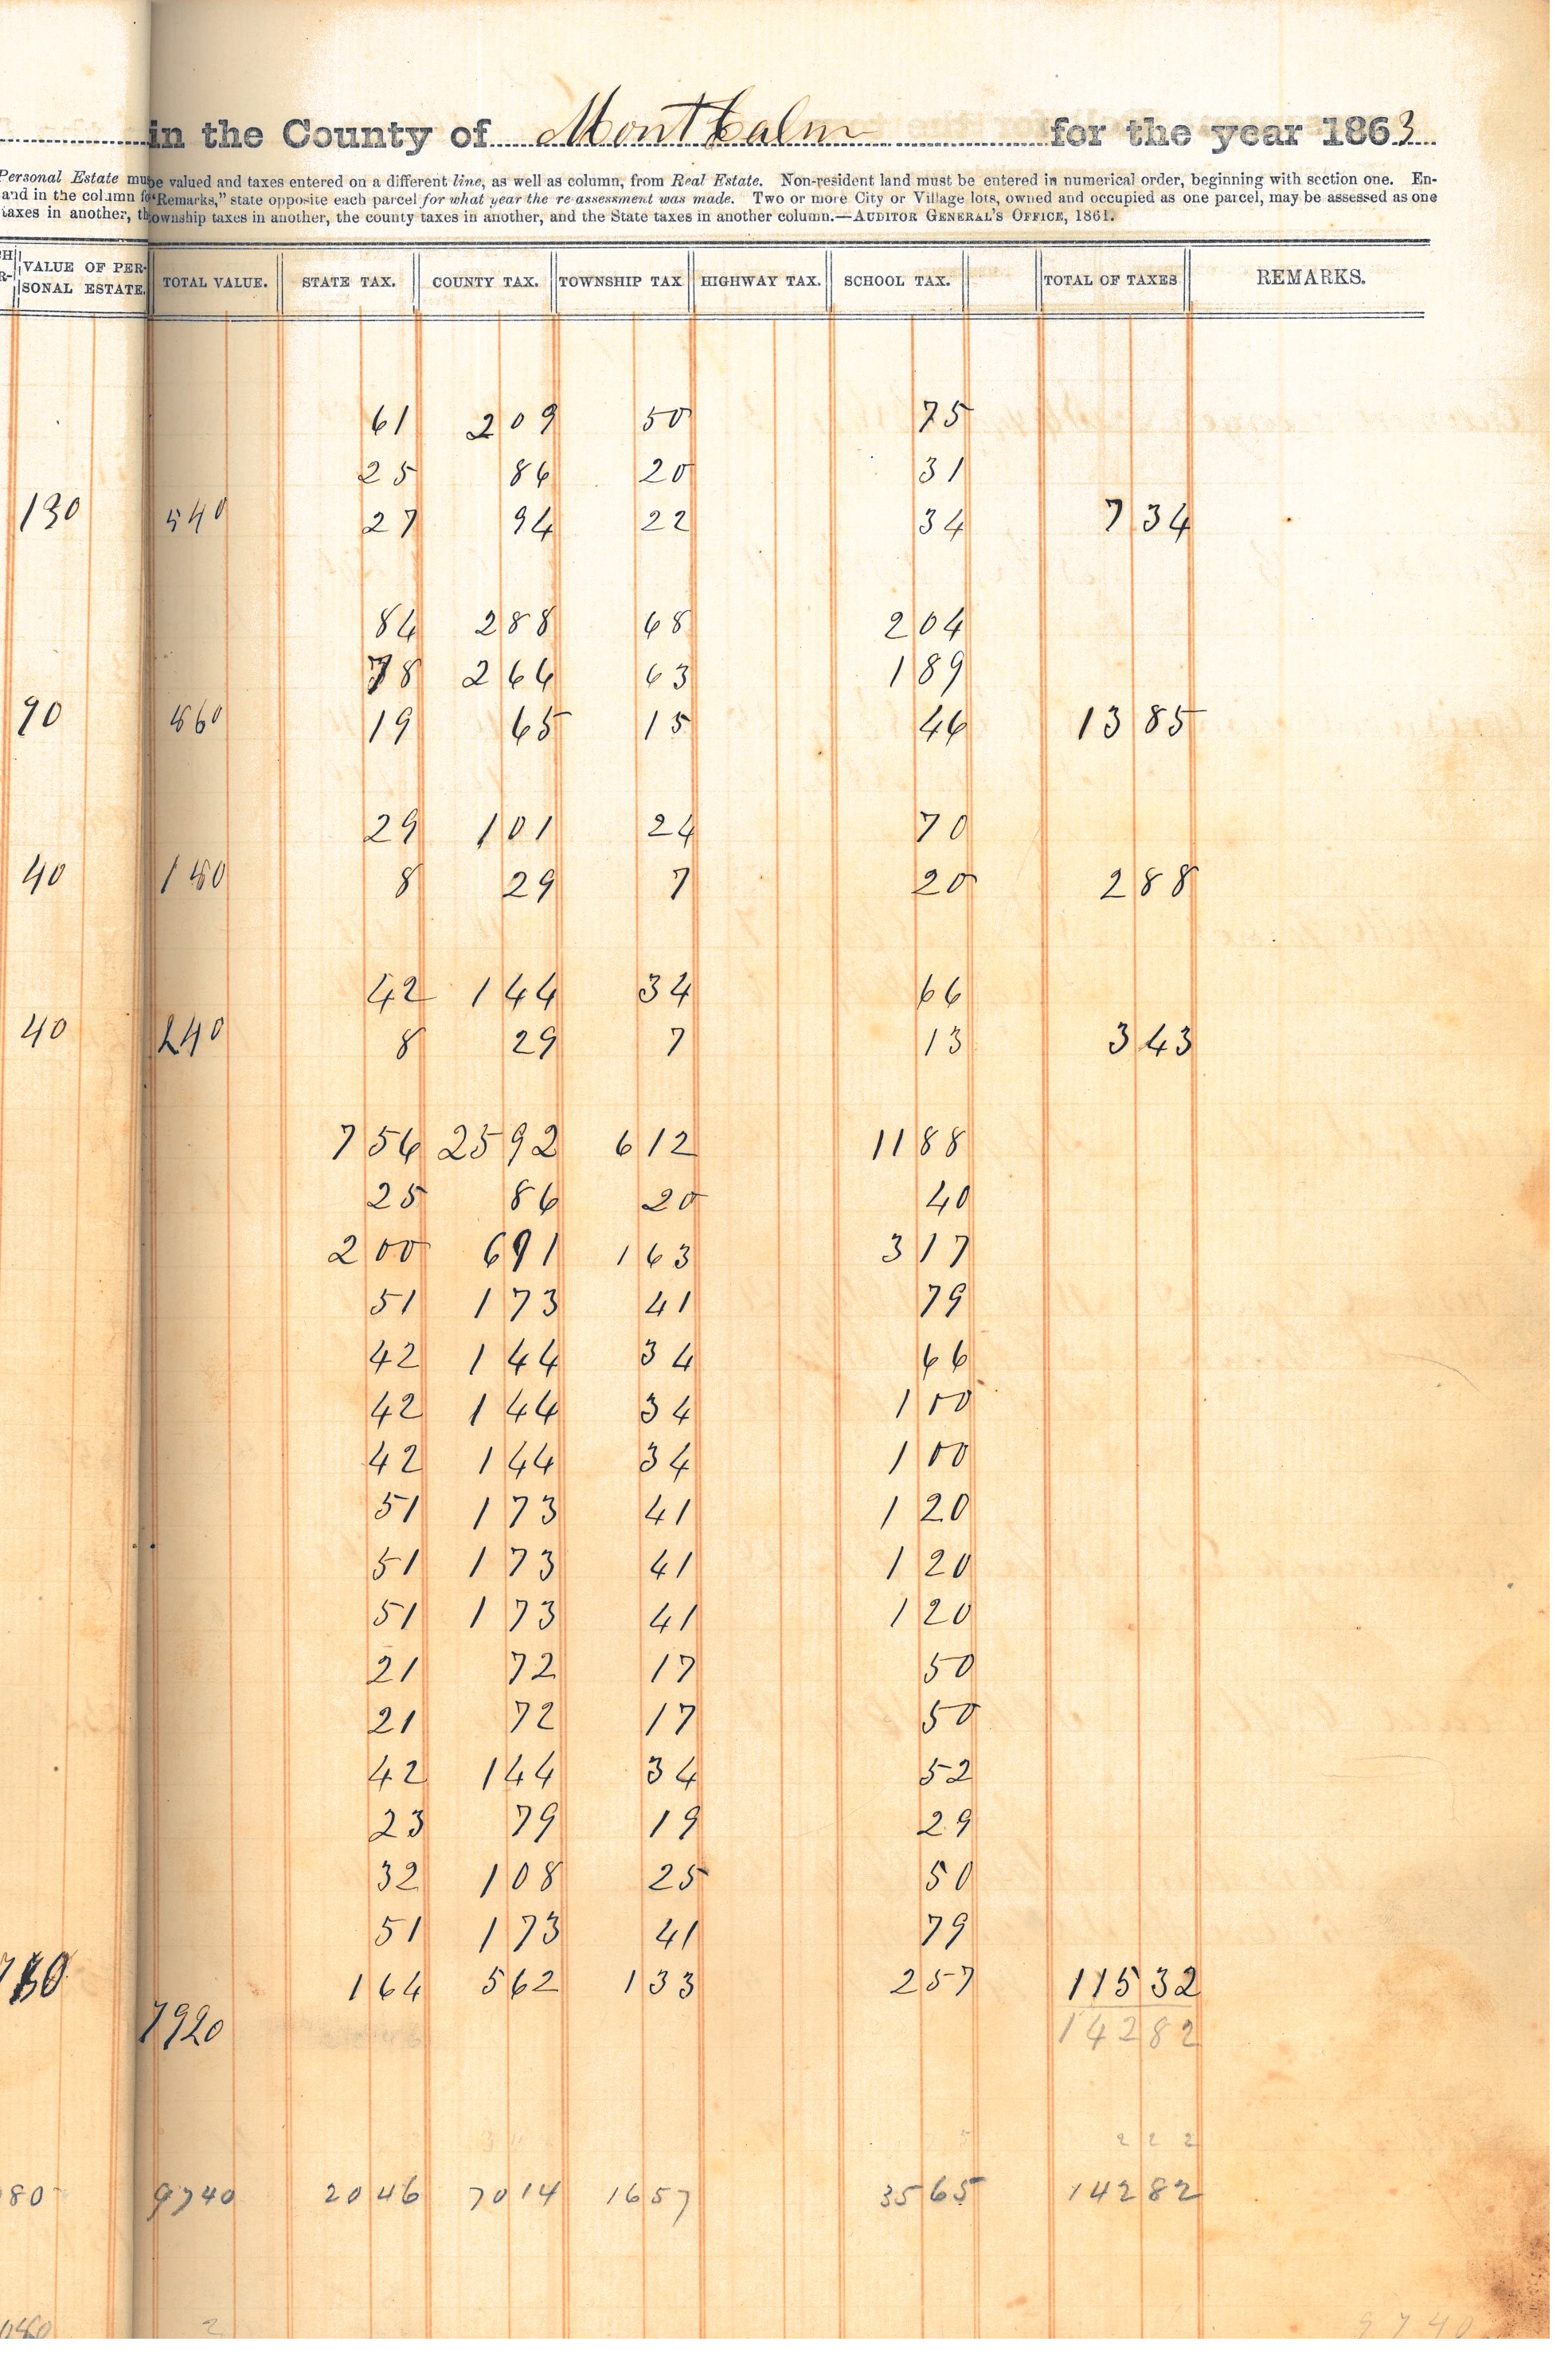 in the County of Montcalm for the year 1863
Personal Estate must be valued and taxes entered on a different line, as well as column, from Real Estate. Non-resident land must be entered in numerical order, beginning with section one. En-
and in the column fo "Remarks," state opposite each parcel for what year the re-assessment was made. Two or more City or Village lots, owned and occupied as one parcel, may be assessed as one
taxes in another, th ownship taxes in another, the county taxes in another, and the State taxes in another column.—AUDITOR GENERAL'S OFFICE, 1861.
VALUE OF PER-SONAL ESTATE. TOTAL VALUE. STATE TAX. COUNTY TAX. TOWNSHIP TAX HIGHWAY TAX. SCHOOL TAX. TOTAL OF TAXES REMARKS.
61 2 09 50 75
25 86 20 31
130 540 27 94 22 34 7 34
84 2 88 68 2 04
78 2 64 63 1 89
90 19 65 15 46 13 85
29 1 01 24 70
40 8 29 7 20 2 88
42 1 44 34 66
40 240 8 29 7 13 3 43
7 56 25 92 6 12 11 88
25 86 20 40
2 00 6 91 1 63 3 17
51 1 73 41 79
42 1 44 34 66
42 1 44 34 1 00
42 1 44 34 1 00
51 1 73 41 1 20
51 1 73 41 1 20
51 1 73 41 1 20
21 72 17 50
21 72 17 50
42 1 44 34 52
23 79 19 29
32 1 08 25 50
51 1 73 41 79
1 64 5 62 1 33 2 57 115 32
7920 142 82
2 2 2
80 9740 20 46 70 14 16 57 35 65 142 82
2 9740